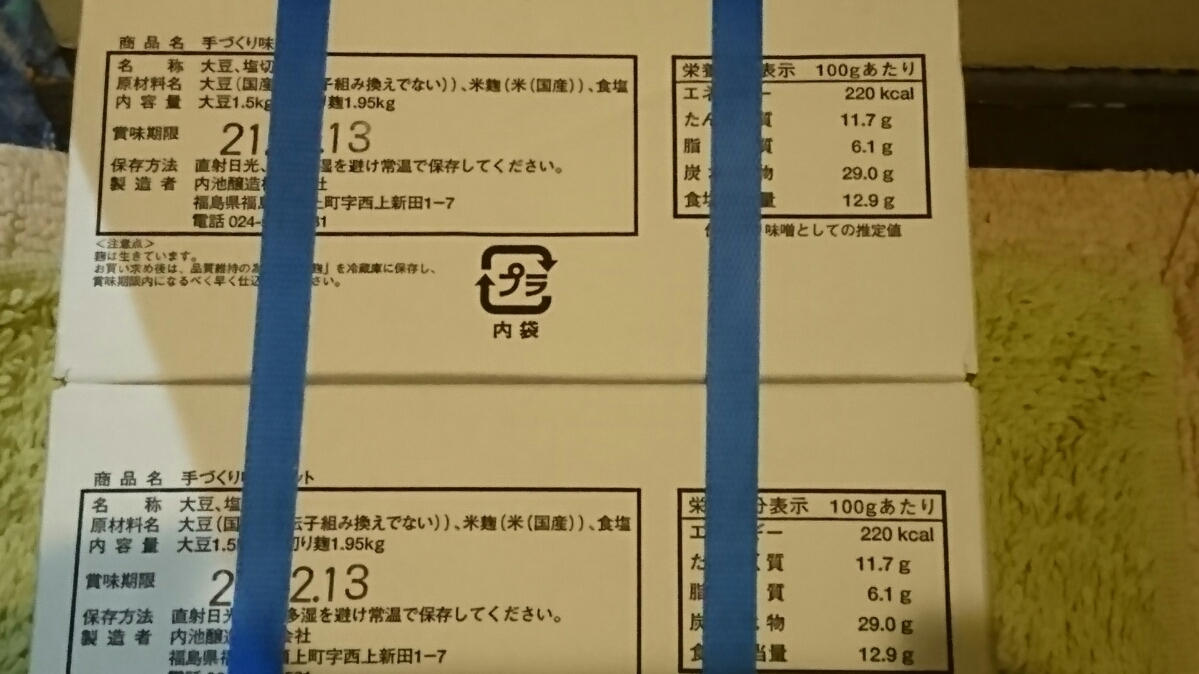 商品名 手づくり味
名 称 大豆、塩切
原材料名 大豆(国産 子組み換えでない))、米麹(米(国産))、食塩
内容量 大豆1.5kg り麹1.95kg
賞味期限 21. .13
保存方法 直射日光、 湿を避け常温で保存してください。
製造者 内池醸造 社
福島県福 上町字西上新田1-7
電話 024- 81
<注意点>
麹は生きています。
お買い求め後は、品質維持の為 麹」を冷蔵庫に保存し、
賞味期限内になるべく早く仕込 さい。
栄養 表示 100gあたり
エネ ー 220 kcal
たん 質 11.7 g
脂 質 6.1 g
炭 物 29.0 g
食塩 量 12.9 g
味噌としての推定値
プラ
内袋
商品名 手づくり ット
名 称 大豆、塩
原材料名 大豆(国 伝子組み換えでない))、米麹(米(国産))、食塩
内容量 大豆1.5 切り麹1.95kg
賞味期限 2 2.13
保存方法 直射日光 多湿を避け常温で保存してください。
製造者 内池醸造 会社
福島県福 上町字西上新田1-7
栄 分表示 100gあたり
エ ギー 220 kcal
た く質 11.7 g
脂 質 6.1 g
炭 物 29.0 g
食 当量 12.9 g